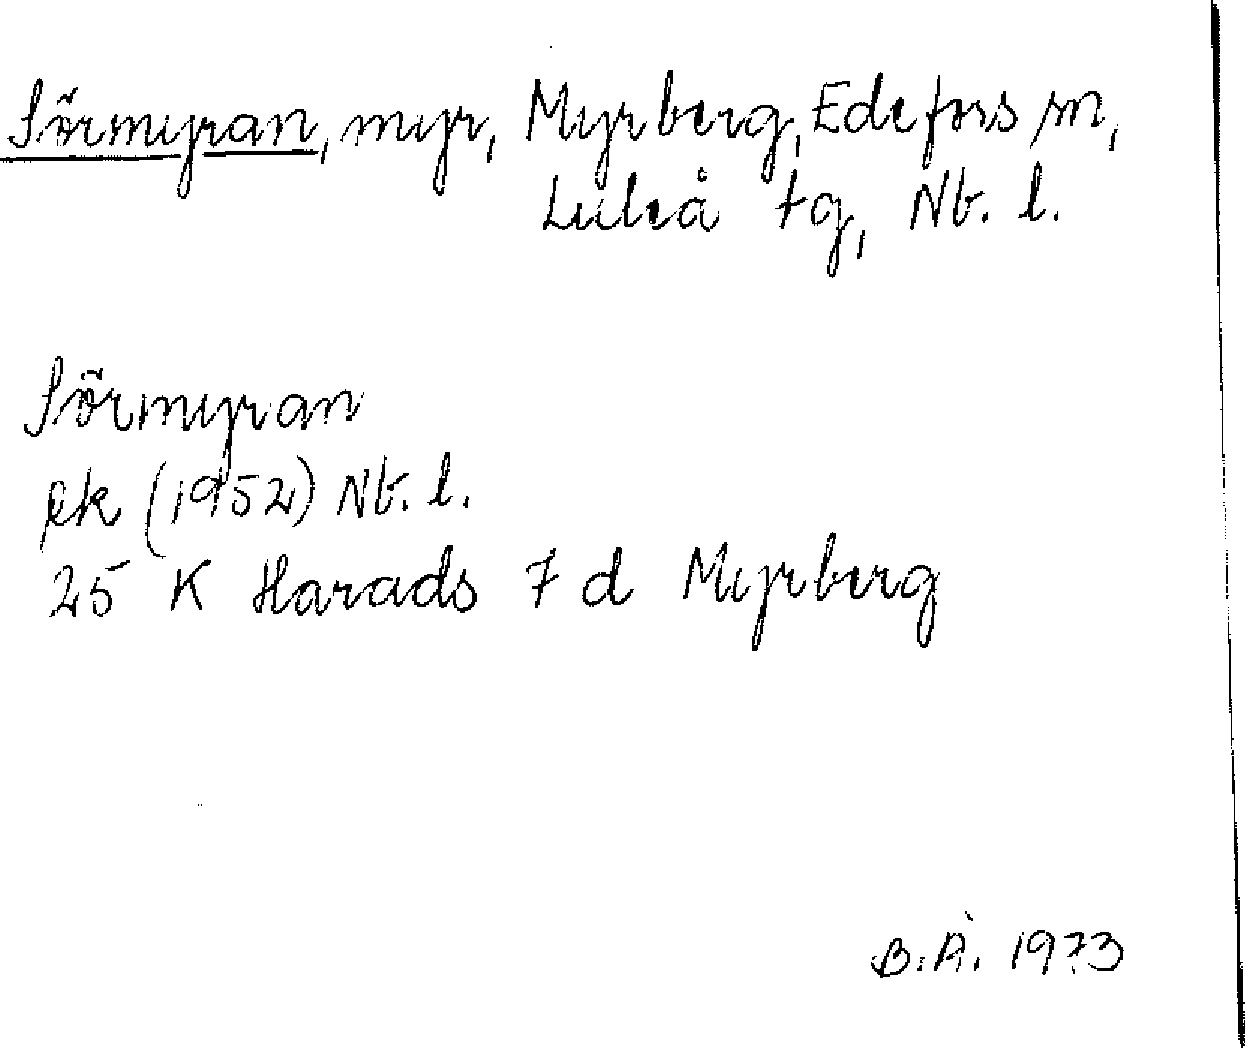 Sörmyran, myr, Myrberg, Edefors sn,
Luleå tg, Nb. l.
Sörmyran
ek (1952) Nb. l.
25 K Harads 7 d Myrberg
B.Å. 1973